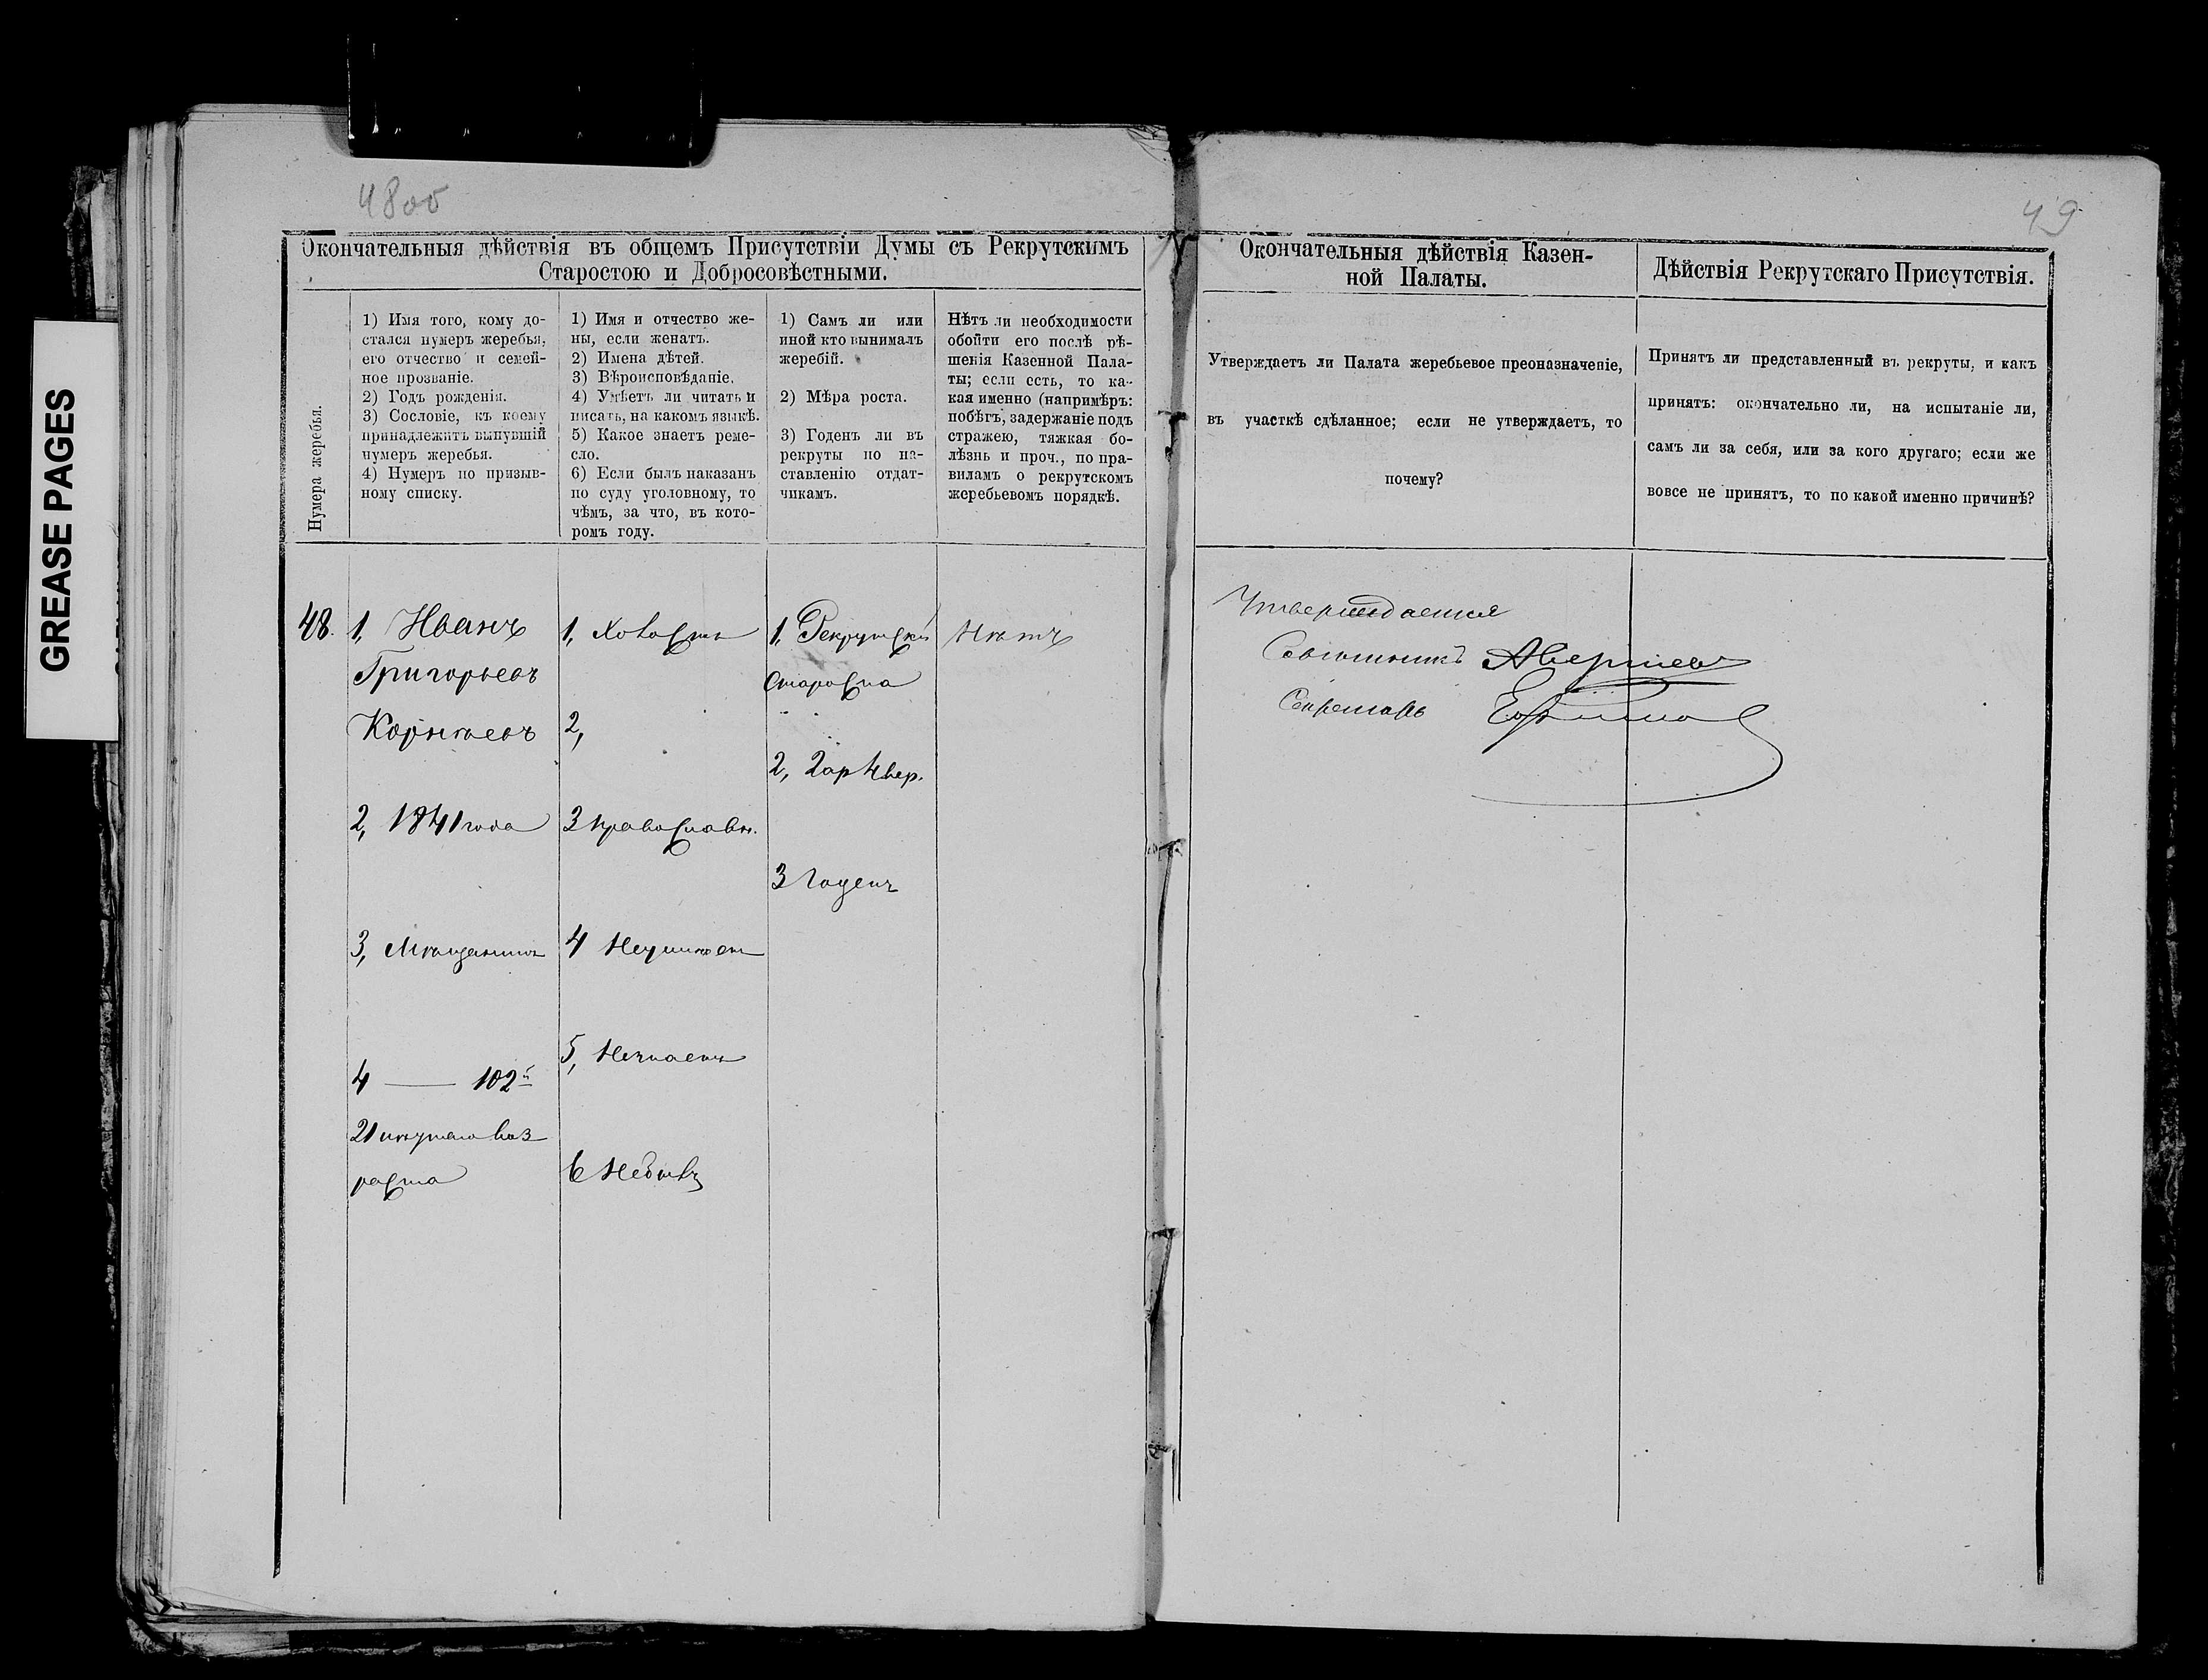 GREASE PAGES
48об
49
Окончательныя дѣйствія въ общемъ Присутствіи Думы съ Рекрутскимъ
Старостою и Добросовѣстными.
Нумера жеребья.
1) Имя того, кому до-
стался нумеръ жеребья,
его отчество и семей-
ное прозваніе.
2) Годъ рожденія.
3) Сословіе, къ коему
принадлежитъ вынувшій
нумеръ жеребья.
4) Нумеръ по призыв-
ному списку.
1) Имя и отчество же-
ны, если женатъ.
2) Имена дѣтей.
3) Вѣроисповѣданіе.
4) Умѣетъ ли читать и
писать, на какомъ языкѣ.
5) Какое знаетъ реме-
сло.
6) Если былъ наказанъ
по суду уголовному, то
чѣмъ, за что, въ кото-
ромъ году.
1) Самъ ли или
иной кто вынималъ
жеребій.
2) Мѣра роста.
3) Годенъ ли въ
рекруты по на-
ставленію отдат-
чикамъ.
Нѣтъ ли необходимости
обойти его послѣ рѣ-
шенія Казенной Пала-
ты; если есть, то ка-
кая именно (напримѣръ:
побѣгъ, задержаніе подъ
стражею, тяжкая бо-
лѣзнь и проч., по пра-
виламъ о рекрутскомъ
жеребьевомъ порядкѣ.
48.
1, Иванъ
Григорьевъ
Корнѣевъ
2, 1841 года
3, Мѣщанинъ
4 — 102й
21 лѣтняго воз
раста
1, Холостъ
2,
3 православн.
4 Неумѣетъ
5, Незнаетъ
6 Небылъ
1, Рекрутскій
староста
2, 2 ар 4 вер.
3 Годенъ
Нѣтъ
Окончательныя дѣйствія Казен-
ной Палаты.
Утверждаетъ ли Палата жеребьевое преоназначеніе,
въ участкѣ сдѣланное; если не утверждаетъ, то
почему?
Утверждается
Совѣтникъ Аверкіевъ
Секретарь
Дѣйствія Рекрутскаго Присутствія.
Принятъ ли представленный въ рекруты, и какъ
принятъ: окончательно ли, на испытаніе ли,
самъ ли за себя, или за кого другаго; если же
вовсе не принятъ, то по какой именно причинѣ?